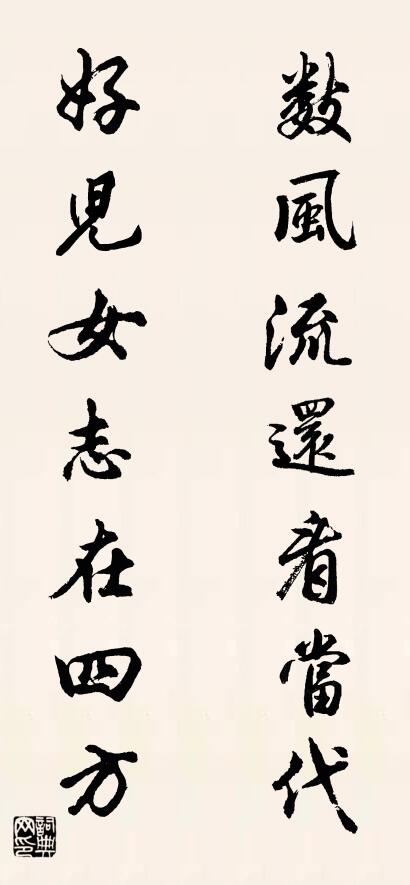 數風流還看當代
好兒女志在四方
詞典網印